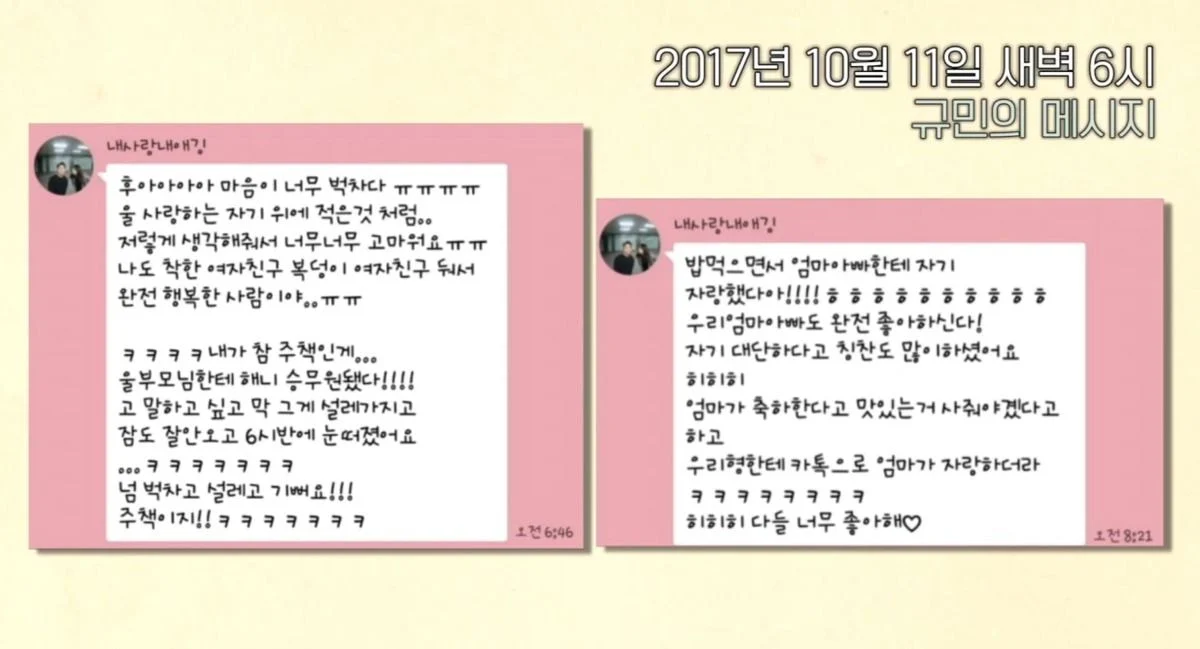 2017년 10월 11일 새벽 6시
규민의 메시지
내사랑내애깅
후아아아아 마음이 너무 벅차다 ㅠㅠㅠㅠ
울 사랑하는 자기 위에 적은것 처럼..
저렇게 생각해줘서 너무너무 고마워요ㅠㅠ
나도 착한 여자친구 복덩이 여자친구 둬서
완전 행복한 사람이야..ㅠㅠ
ㅋㅋㅋㅋ내가 참 주책인게...
울부모님한테 해니 승무원됐다!!!!
고 말하고 싶고 막 그게 설레가지고
잠도 잘안오고 6시반에 눈떠졌어요
...ㅋㅋㅋㅋㅋㅋㅋ
넘 벅차고 설레고 기뻐요!!!
주책이지!!ㅋㅋㅋㅋㅋㅋㅋ
오전 6:46
내사랑내애깅
밥먹으면서 엄마아빠한테 자기
자랑했다아!!!!ㅎㅎㅎㅎㅎㅎㅎㅎㅎㅎ
우리엄마아빠도 완전 좋아하신다!
자기 대단하다고 칭찬도 많이하셨어요
히히히
엄마가 축하한다고 맛있는거 사줘야겠다고
하고
우리형한테 카톡으로 엄마가 자랑하더라
ㅋㅋㅋㅋㅋㅋㅋㅋ
히히히 다들 너무 좋아해♡
오전 8:21